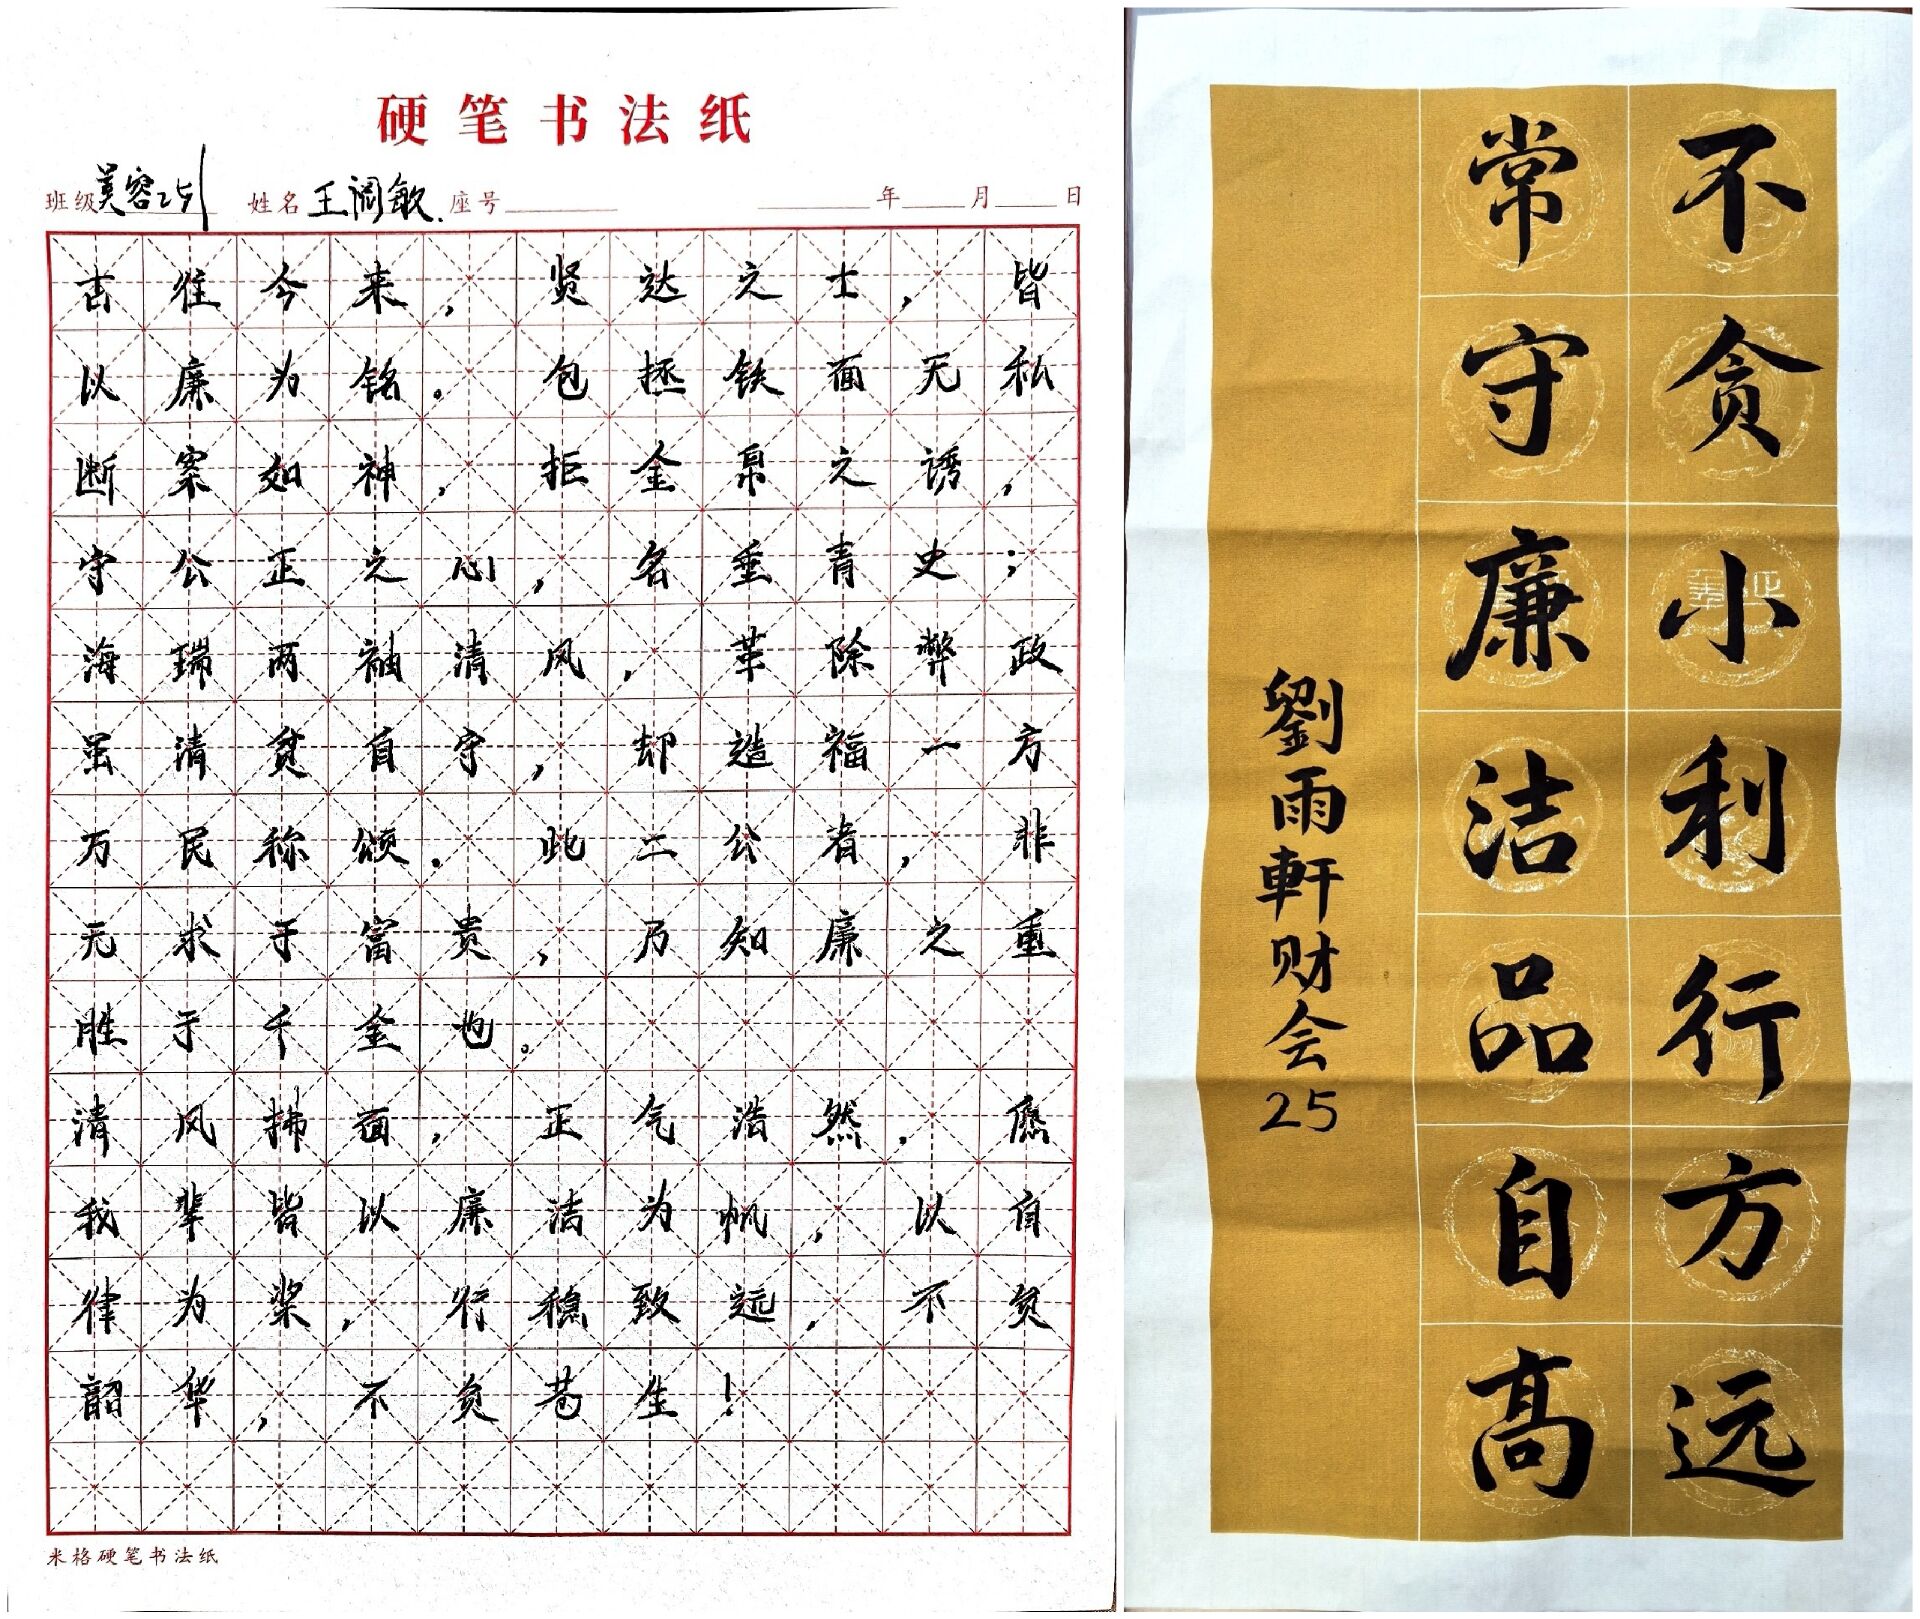 硬笔书法纸
班级美容251 姓名王阔敏.座号 年 月 日
古往今来，贤达之士，皆
以廉为铭。包拯铁面无私
断案如神，拒金帛之诱，
守公正之心，名垂青史；
海瑞两袖清风，革除弊政
虽清贫自守，却造福一方
万民称颂。此二公者，非
无求于富贵，乃知廉之重
胜于千金也。
清风拂面，正气浩然，愿
我辈皆以廉洁为帆，以自
律为桨，行稳致远，不负
韶华，不负苍生！
米格硬笔书法纸
不贪小利行方远
常守廉洁品自高
劉雨軒财会25